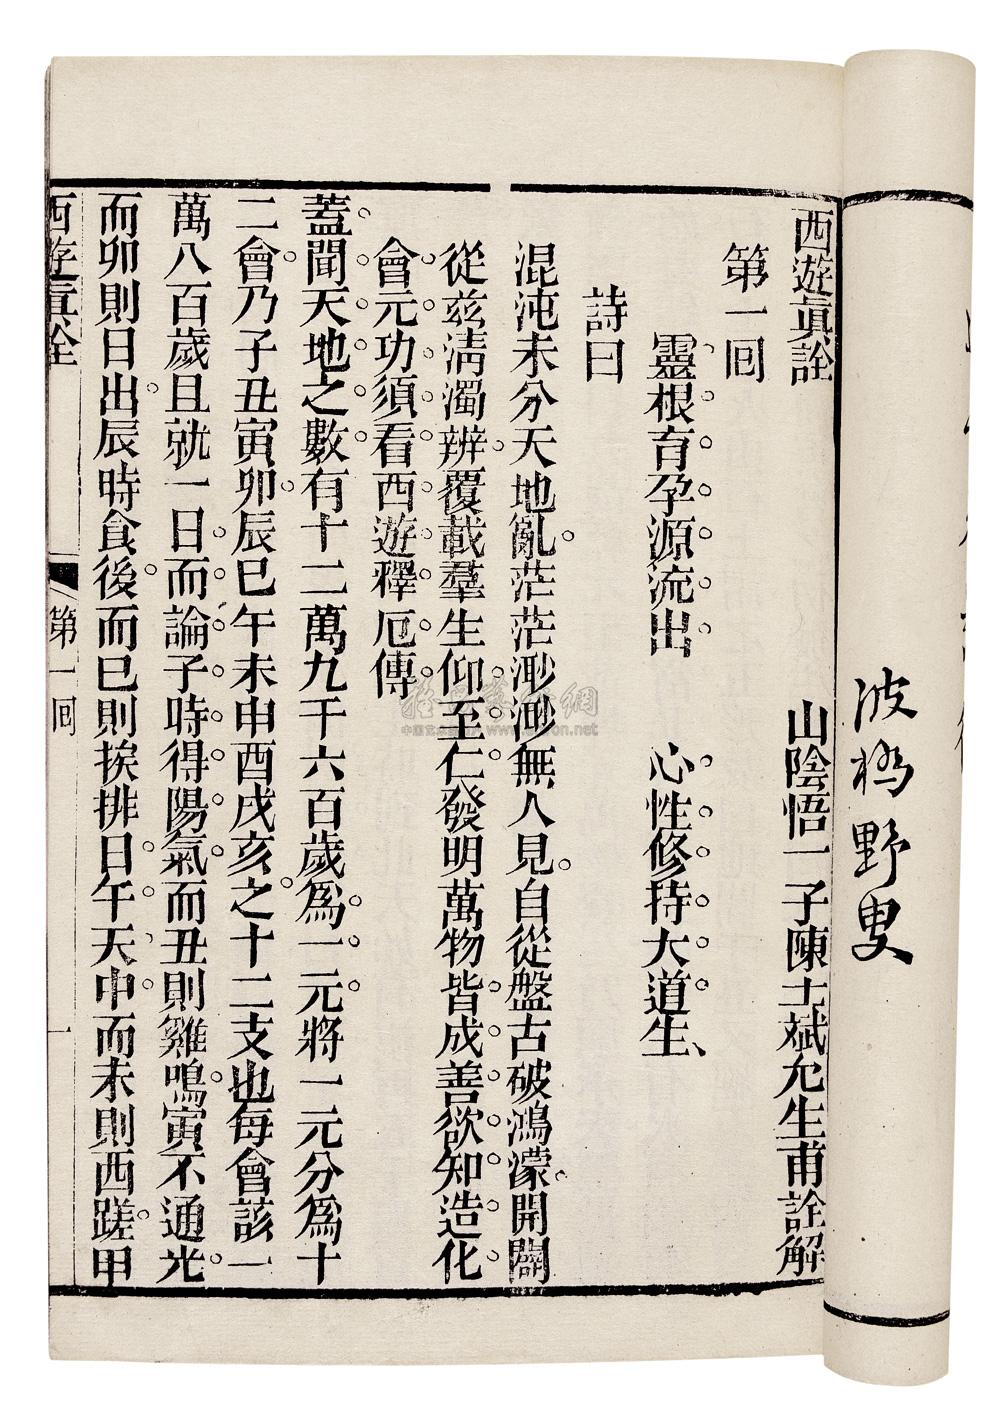 波橋野叟
西遊眞詮
山陰悟一子陳士斌允生甫詮解
第一回
靈根育孕源流出 心性修持大道生、
詩曰
混沌未分天地亂。茫茫渺渺無人見。自從盤古破鴻濛。開闢
從兹淸濁辨。覆載羣生仰至仁。發明萬物皆成善。欲知造化
會元功。須看西遊釋厄傳。
蓋聞天地之數有十二萬九千六百歲爲一元。將一元分爲十
二會。乃子丑寅卯。辰巳午未申酉戌亥。之十二支也。每會該一
萬八百歲。且就一日而論。子時得陽氣。而丑則雞鳴。寅不通光。
而卯則日出。辰時食後。而巳則挨排。日午天中。而未則西蹉。申
西遊眞詮
第一回
一